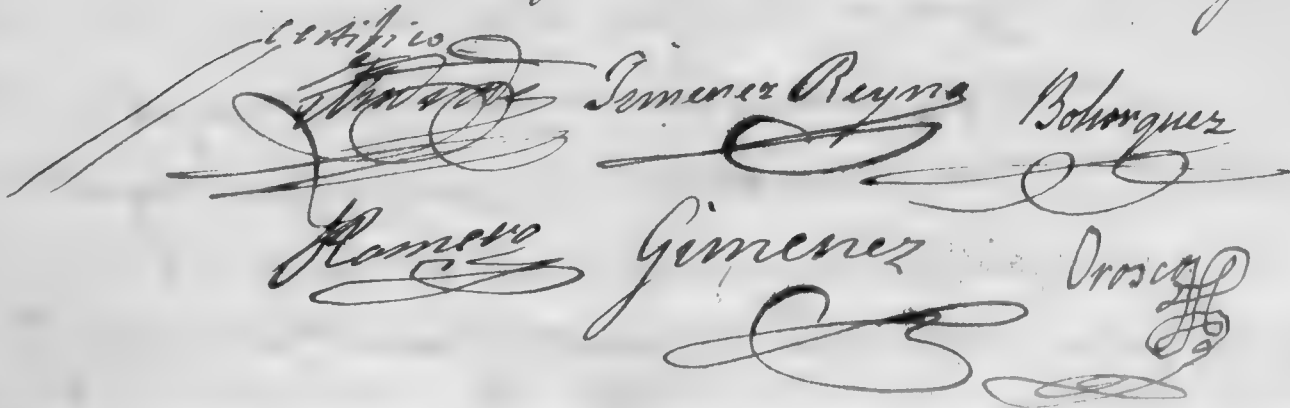 certifico
Jimenez Reyna Bohorquez
Romero Gimenez Orosco